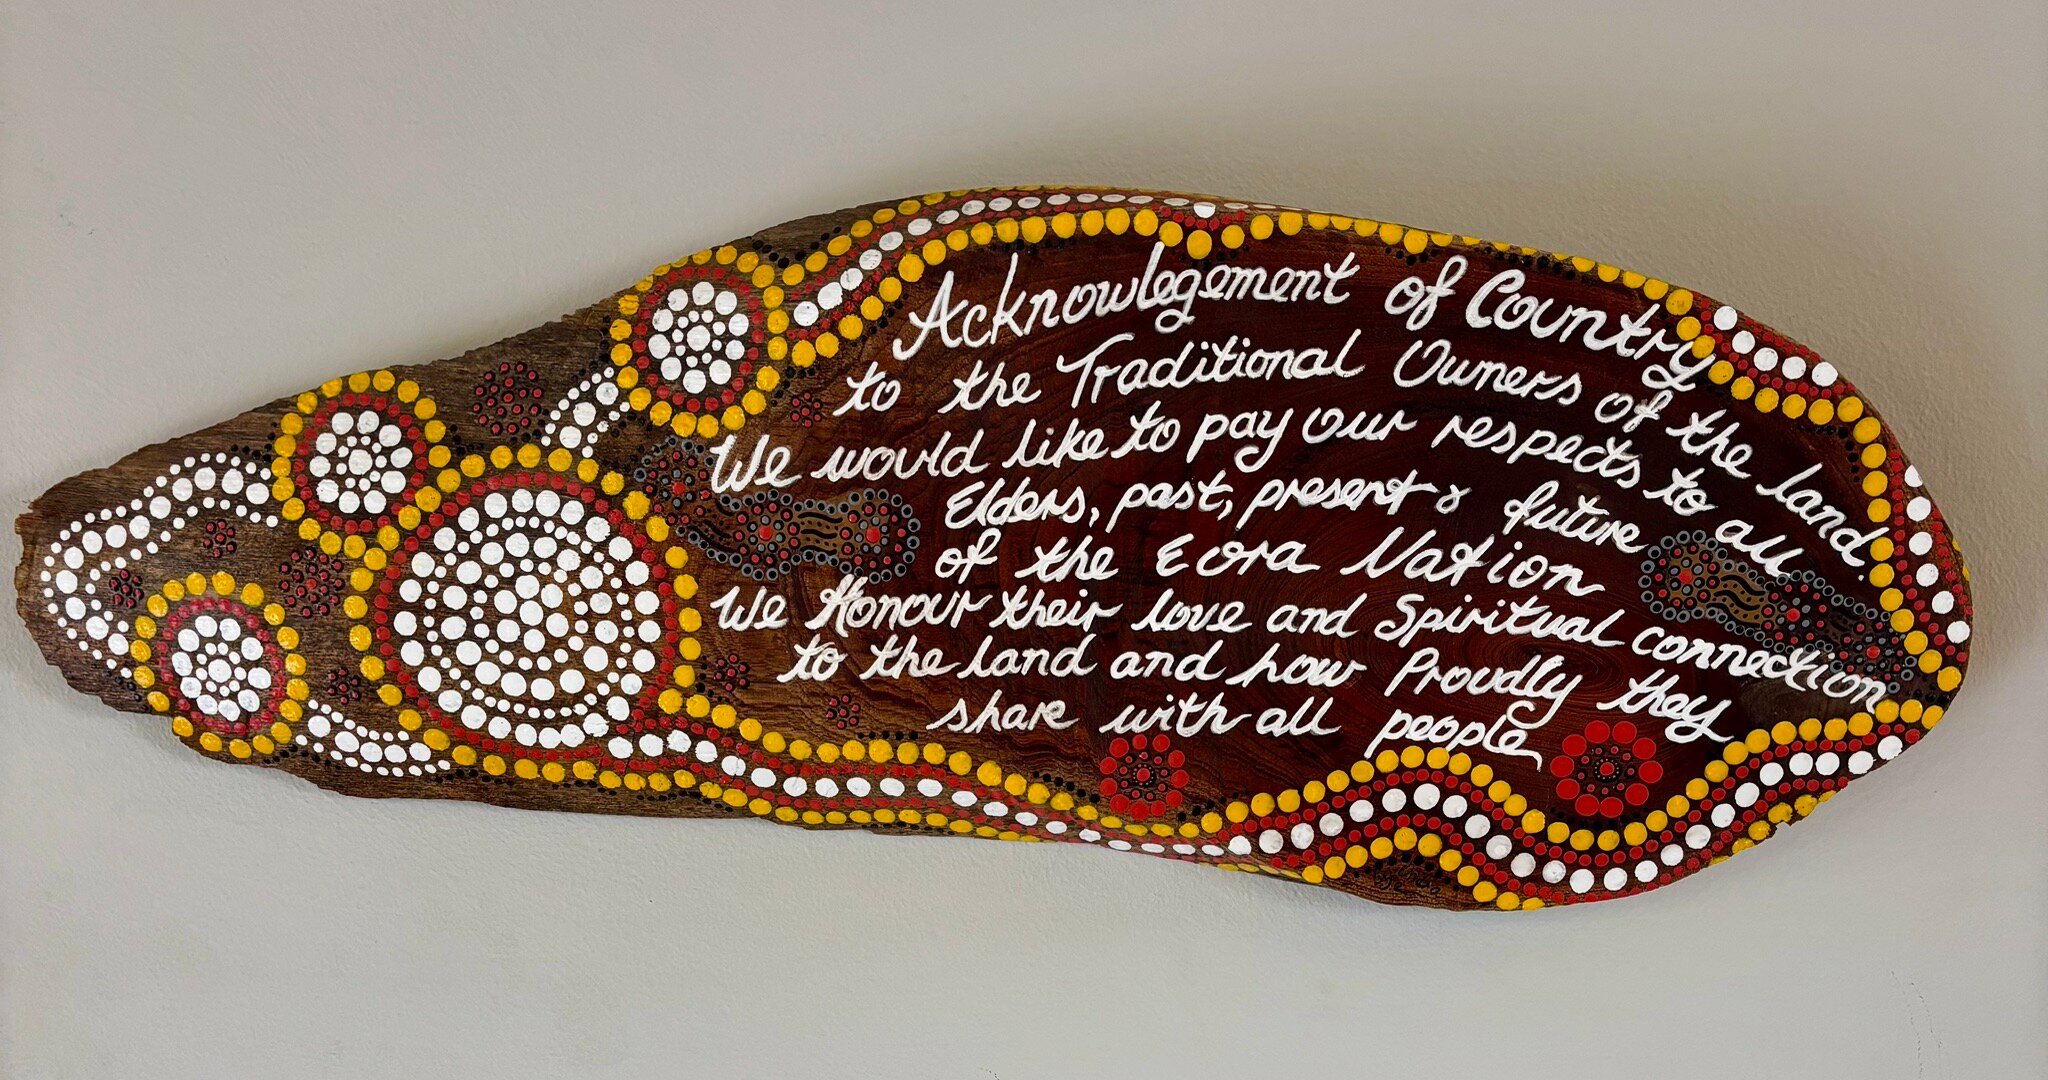 Acknowlegement of Country
to the Traditional Owners of the land.
We would like to pay our respects to all
Elders, past, present & future
of the Eora Nation
We Honour their love and Spiritual connection
to the land and how Proudly they
share with all people